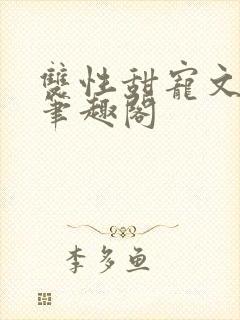 雙性甜寵文
筆趣閣
李多魚